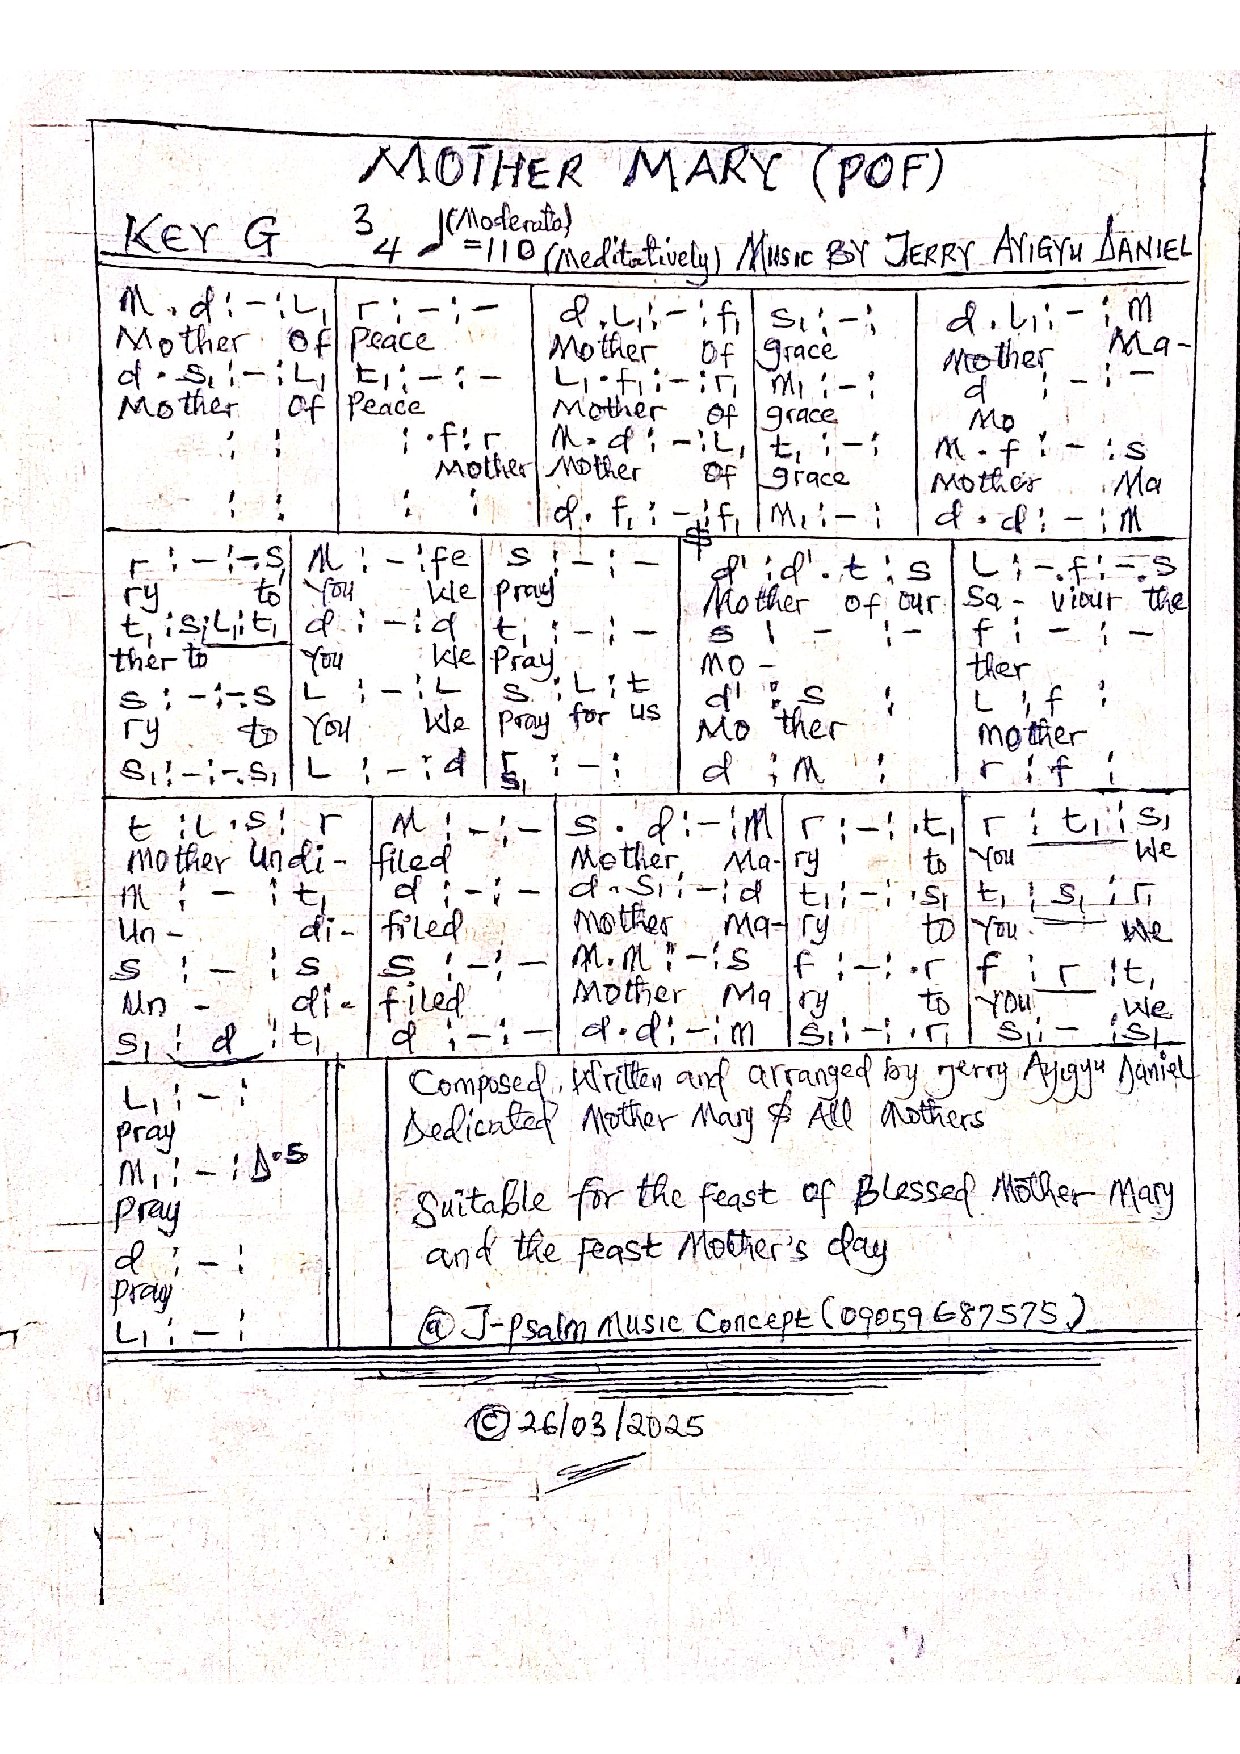 MOTHER MARY (POF)
KEY G 3/4 ♩=110 (Moderato) (Meditatively) MUSIC BY JERRY AYIGYU DANIEL
M . d : - : L₁ | r : - : - | d . L₁ : - : f₁ | s₁ : - : | d . L₁ : - : M
Mother Of | Peace | Mother Of | grace | Mother Ma-
d . s₁ : - : L₁ | t₁ : - : - | L₁ . f₁ : - : r₁ | M₁ : - : | d : - : -
Mother Of | Peace | Mother Of | grace | Mo
: : | : . f : r | M . d : - : L₁ | t₁ : - : | M . f : - : s
Mother | Mother Of | grace | Mother Ma
: : | : : | d . f₁ : - : f₁ | M₁ : - : | d . d : - : M
r : - : - . s₁ | M : - : fe | s : - : - | d' : d' . t : s | L : - . f : - . s
ry to | You We | Pray | Mother of our | Sa- viour the
t₁ : s₁ . L₁ : t₁ | d : - : d | t₁ : - : - | s : - : - | f : - : -
ther to | You We | Pray | Mo - | ther
s : - : - . s | L : - : L | s : L : t | d' : s : | L : f :
ry to | You We | Pray for us | Mo ther | mother
s₁ : - : - . s₁ | L : - : d | s₁ : - : | d : M : | r : f :
t : L . s : r | M : - : - | s . d : - : M | r : - : . t₁ | r : t₁ : s₁
Mother Undi- | filed | Mother, Ma- | ry to | You We
M : - : t₁ | d : - : - | d . s₁ : - : d | t₁ : - : . s₁ | t₁ : s₁ : r₁
Un- di- | filed | Mother Ma- | ry to | You We
s : - : s | s : - : - | M . M : - : s | f : - : . r | f : r : t₁
Un - di- | filed | Mother Ma | ry to | You We
s₁ : d : t₁ | d : - : - | d . d : - : m | s₁ : - : . r₁ | s₁ : - : s₁
L₁ : - :
Pray
M₁ : - : D.S
Pray
d : - :
Pray
L₁ : - :
Composed, Written and arranged by Jerry Ayigyu Daniel
Dedicated Mother Mary & All Mothers
Suitable for the feast of Blessed Mother Mary
and the feast Mother's day
@ J-Psalm Music Concept (09059687575)
© 26/03/2025